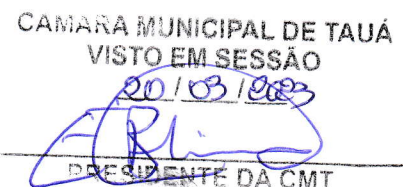 CAMARA MUNICIPAL DE TAUÁ
VISTO EM SESSÃO
20 / 03 / 2023
PRESIDENTE DA CMT